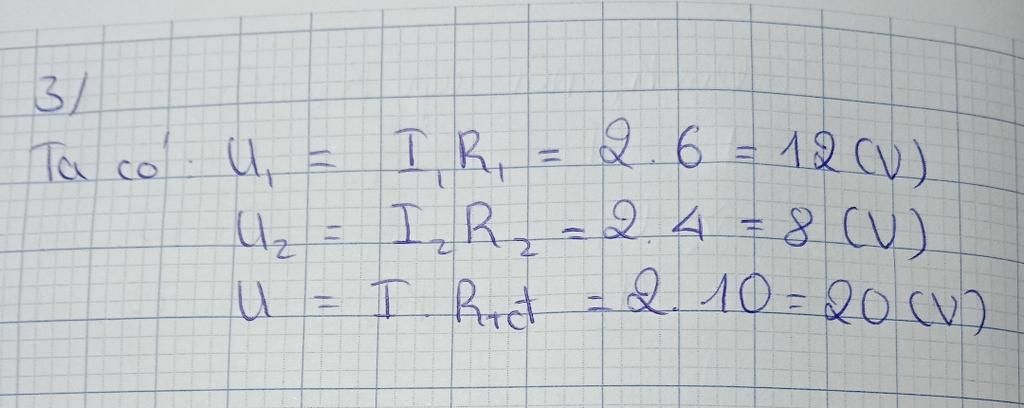 3/
Ta có: U₁ = I₁R₁ = 2.6 = 12 (V)
U₂ = I₂R₂ = 2.4 = 8 (V)
U = I.Rtđ = 2.10 = 20 (V)